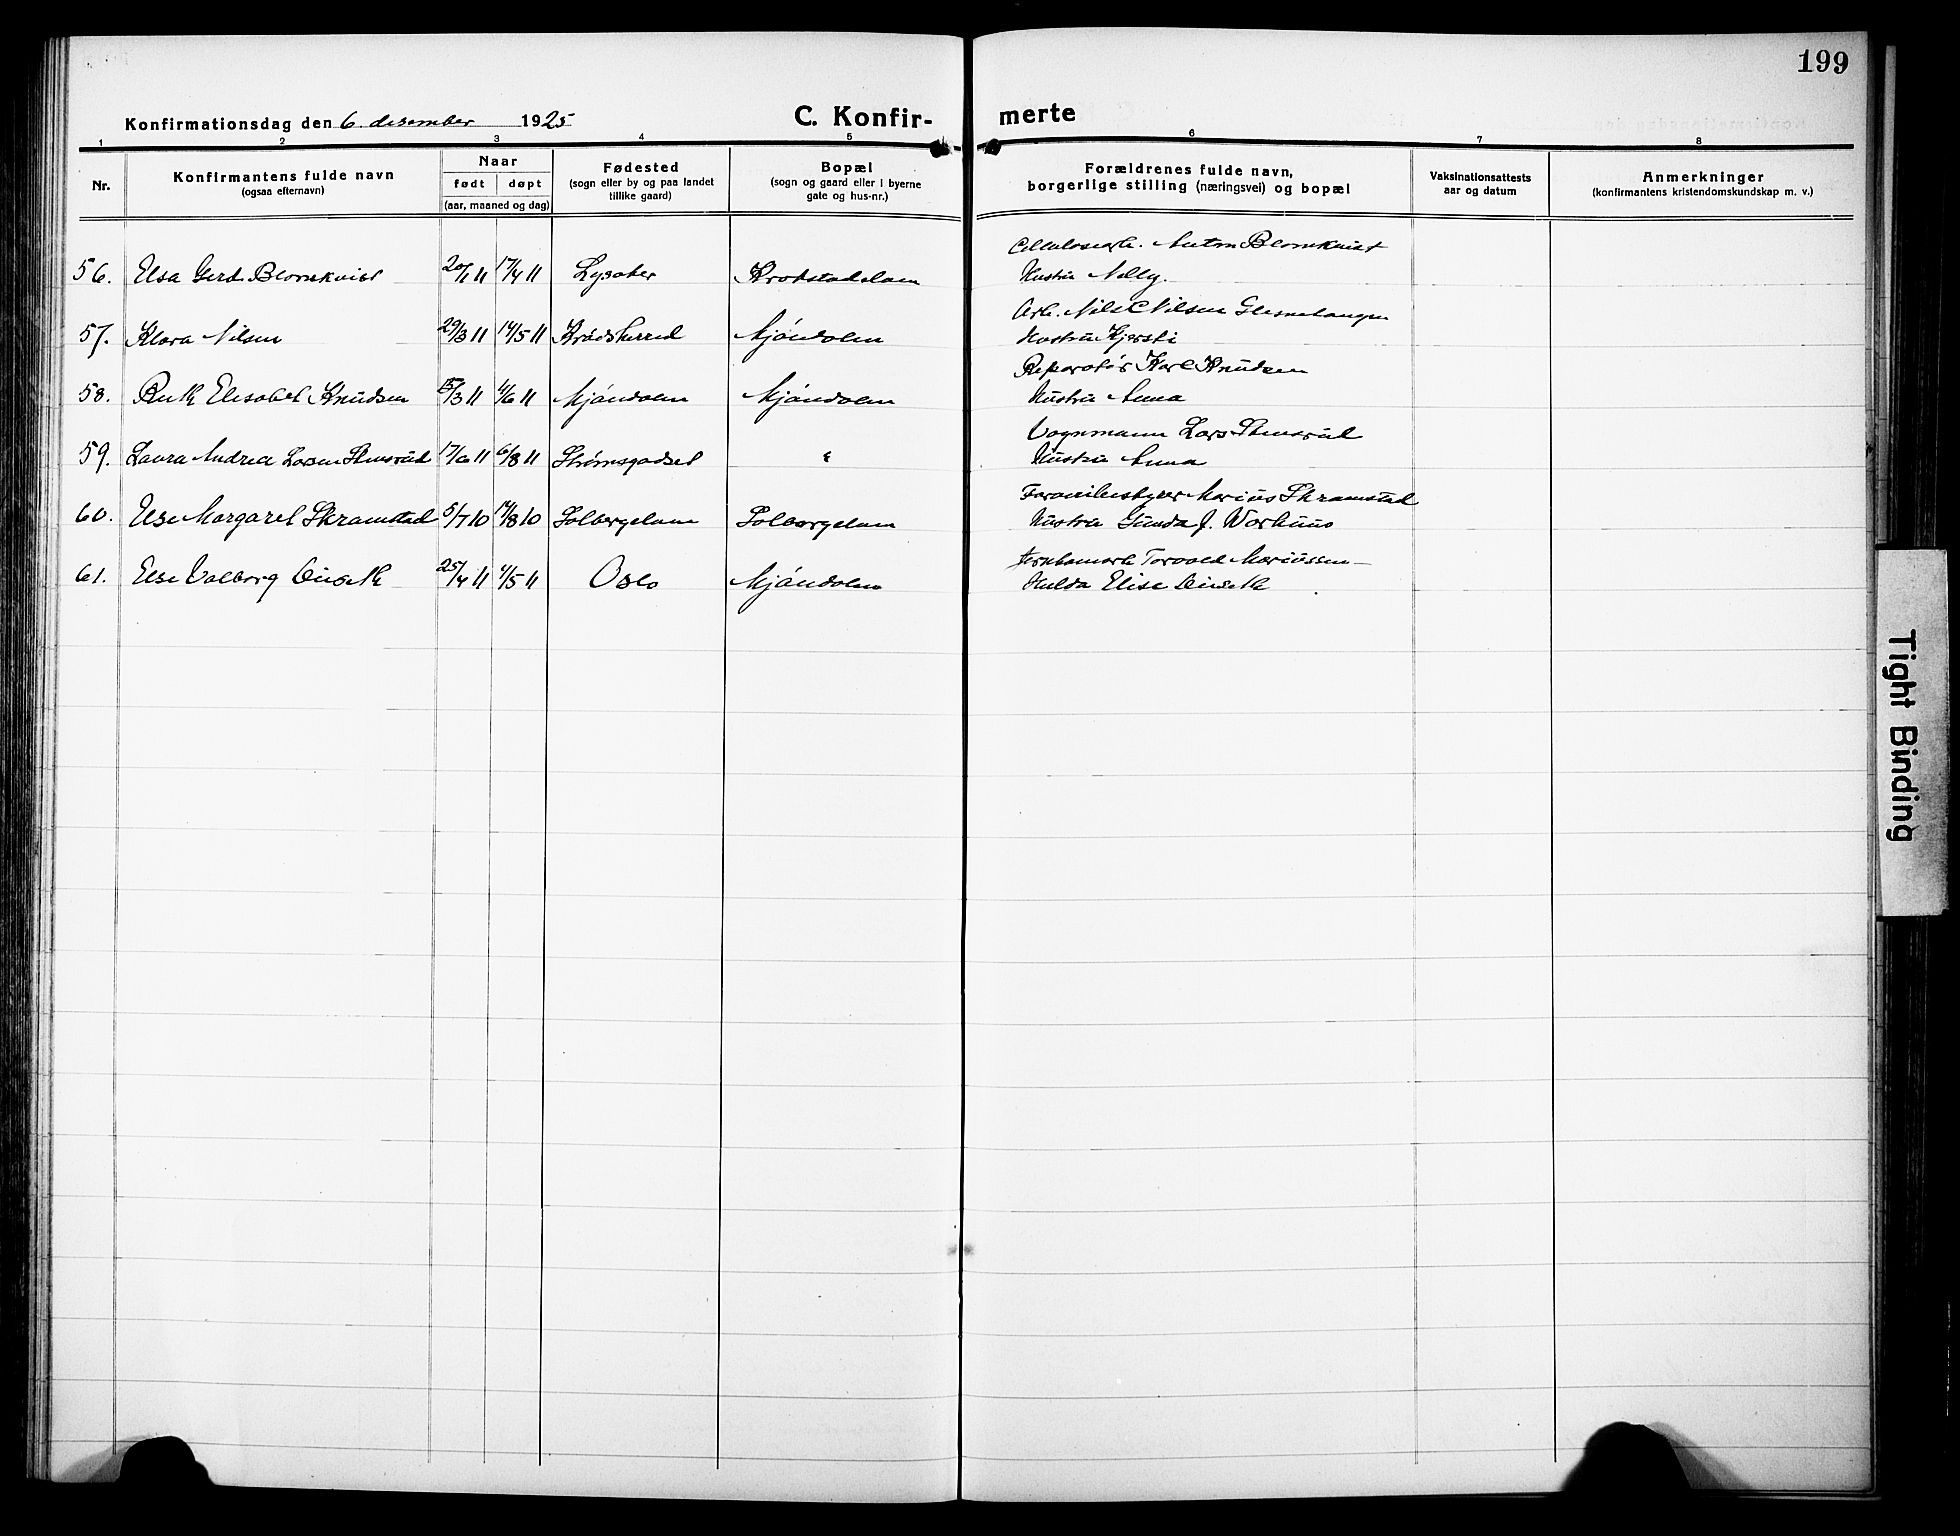 199
Konfirmationsdag den 6. desember 1925 C. Konfir- merte
1 2 3 4 5 6 7 8
Nr.
Konfirmantens fulde navn
(ogsaa efternavn)
Naar
født døpt
(aar, maaned og dag)
Fødested
(sogn eller by og paa landet
tillike gaard)
Bopæl
(sogn og gaard eller i byerne
gate og hus-nr.)
Forældrenes fulde navn,
borgerlige stilling (næringsvei) og bopæl
Vaksinationsattests
aar og datum
Anmerkninger
(konfirmantens kristendomskundskap m. v.)
Cellulosearb. Anton Blomkvist
56. Elsa Gerd Blomkvist 20/1 11 17/4 11 Lysaker Krokstadelven Hustru Nelly.
Arb. Nils C Nilsen
57. Klara Nilsen 29/3 11 14/5 11 Krødsherred Mjøndalen Hustru Kjersti
Reparatør Karl Knudsen
58. Ruth Elisabet Knudsen 15/3 11 4/6 11 Mjøndalen Mjøndalen Hustru Anna
Vognmann Lars Stensrud
59. Laura Andrea Larsen Stensrud 17/6 11 6/8 11 Strømsgodset " Hustru Anna
Marius Skramstad
60. Else Margaret Skramstad 5/7 10 14/8 10 Solbergelven Solbergelven Hustru Gunda J. Worhuus
Jernbanearb Torvald Mariussen –
61. Else Valborg 25/4 11 4/5 11 Oslo Mjøndalen Hulda Elise
Tight Binding